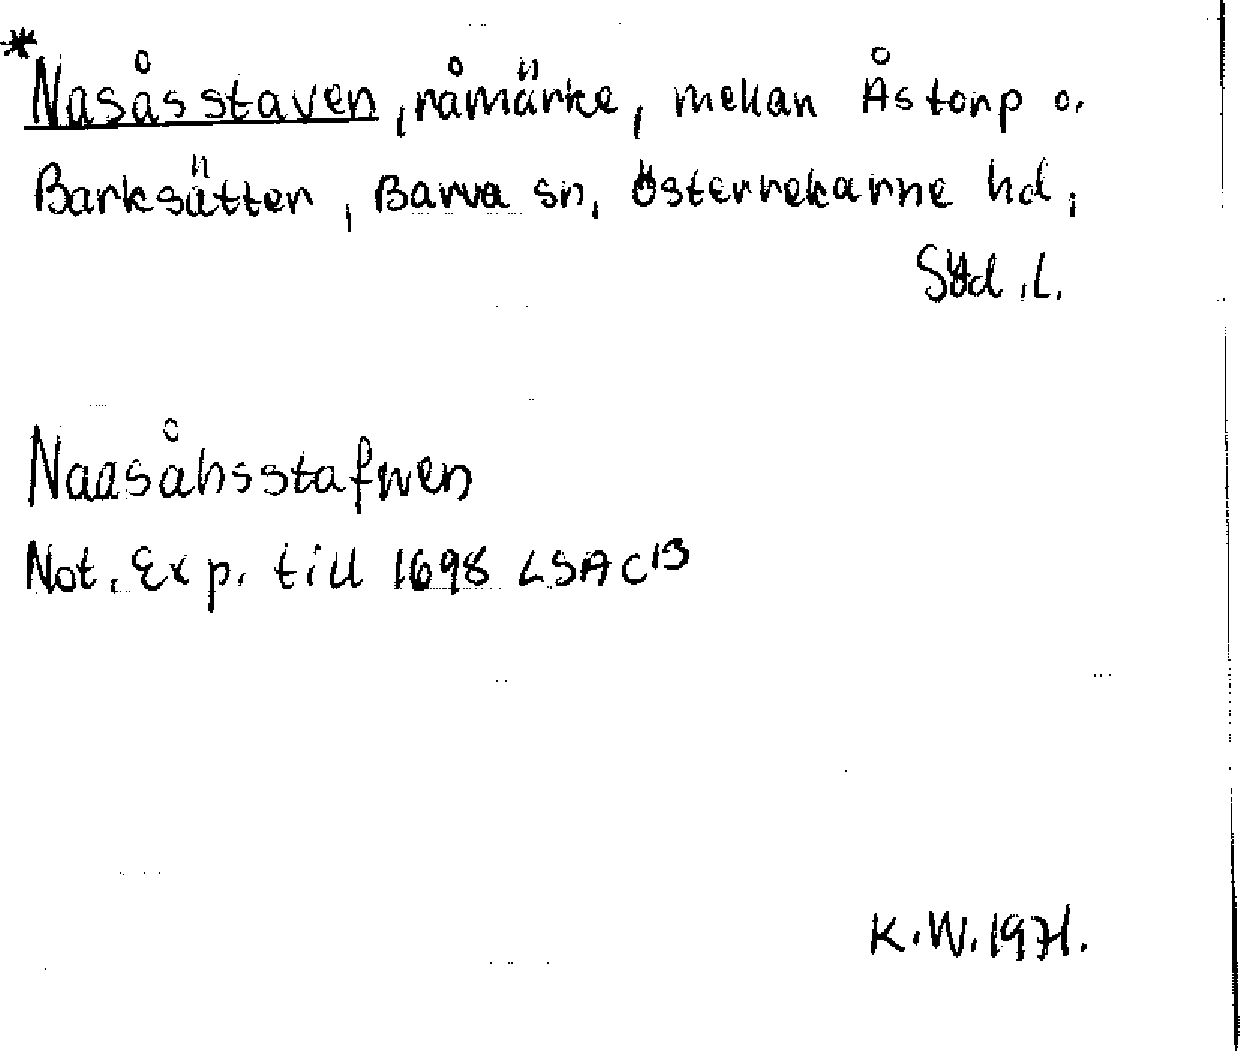 *Nasåsstaven, råmärke, mellan Åstorp o.
Barksätter, Barva sn, Österrekarne hd,
Söd. l.
Naasåhsstafwen
Not. Exp. till 1698 LSA C13
K.W. 1971.